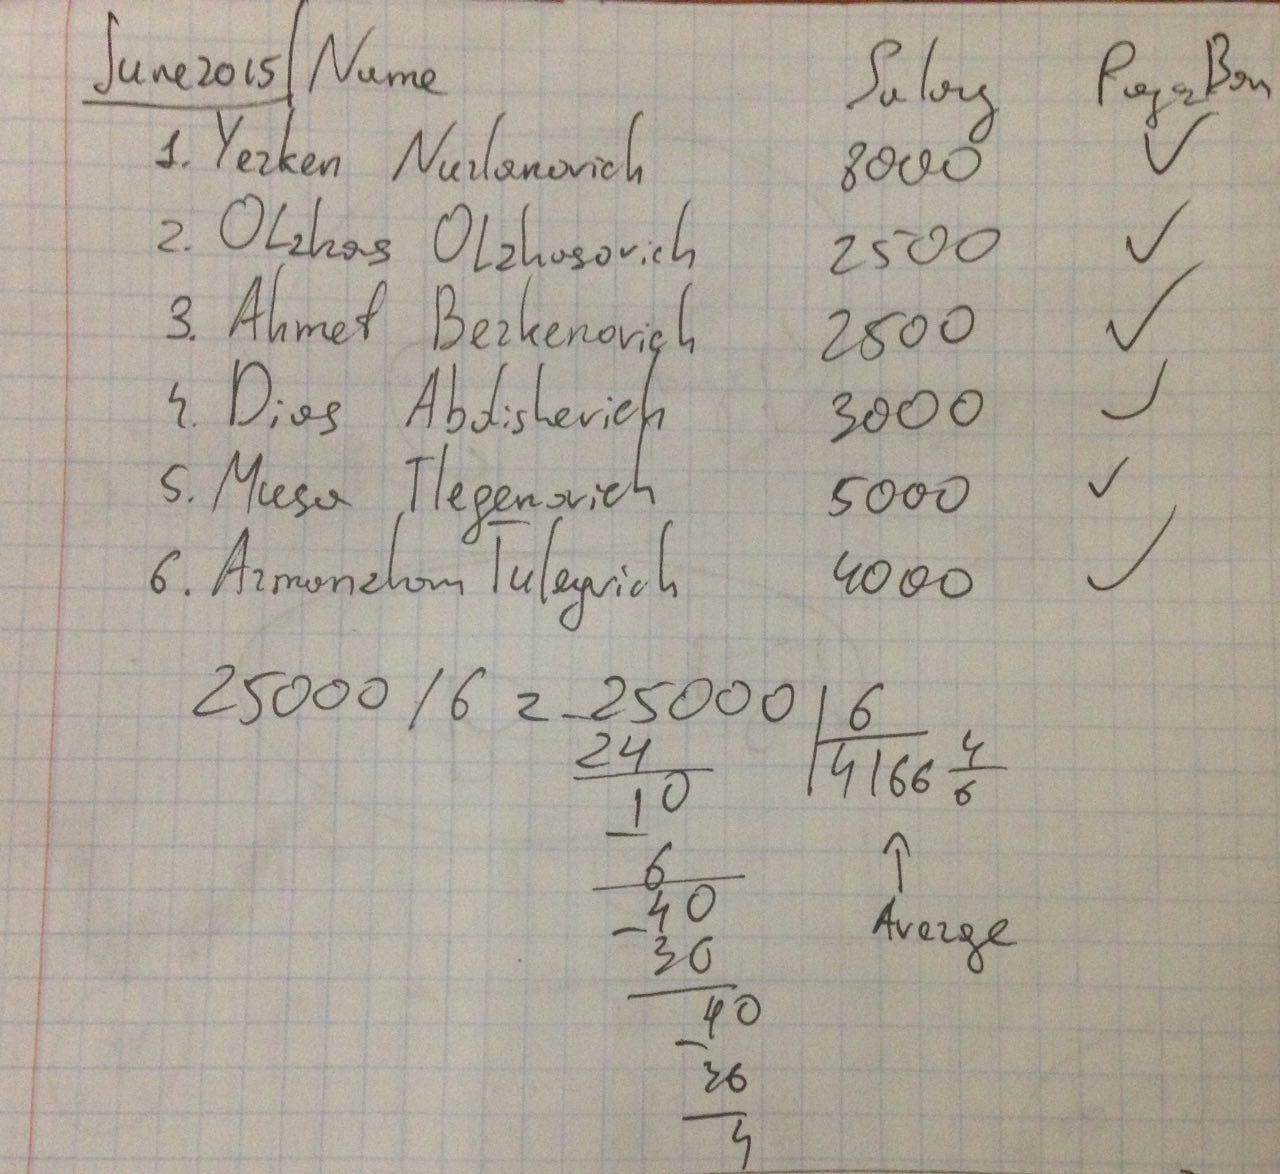 June2015 Name Salary
1. Yerken Nurlanovich 8000 ✓
2. Olzhas Olzhasovich 2500 ✓
3. Ahmet Berkenovich 2500 ✓
4. Dias Abdishevich 3000 ✓
5. Musa Tlegenovich 5000 ✓
6. Armanzhan 4000 ✓
25000 / 6 = 25000 | 6
24 4166 4/6
10
6
40
36
Averge
40
36
4